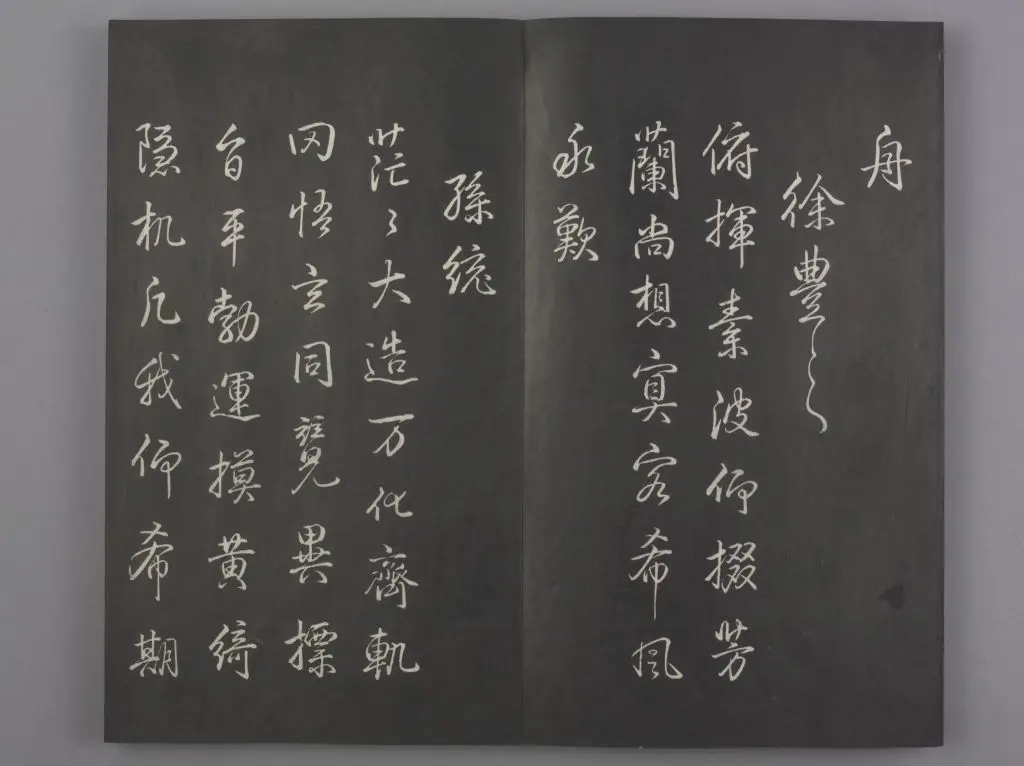 舟
徐豊之
俯揮素波仰掇芳
蘭尚想冥客希風
永歎
孫統
茫〻大造万化齊軌
罔悟玄同競異摽
旨平勃運摸黄綺
隐机凡我仰希期